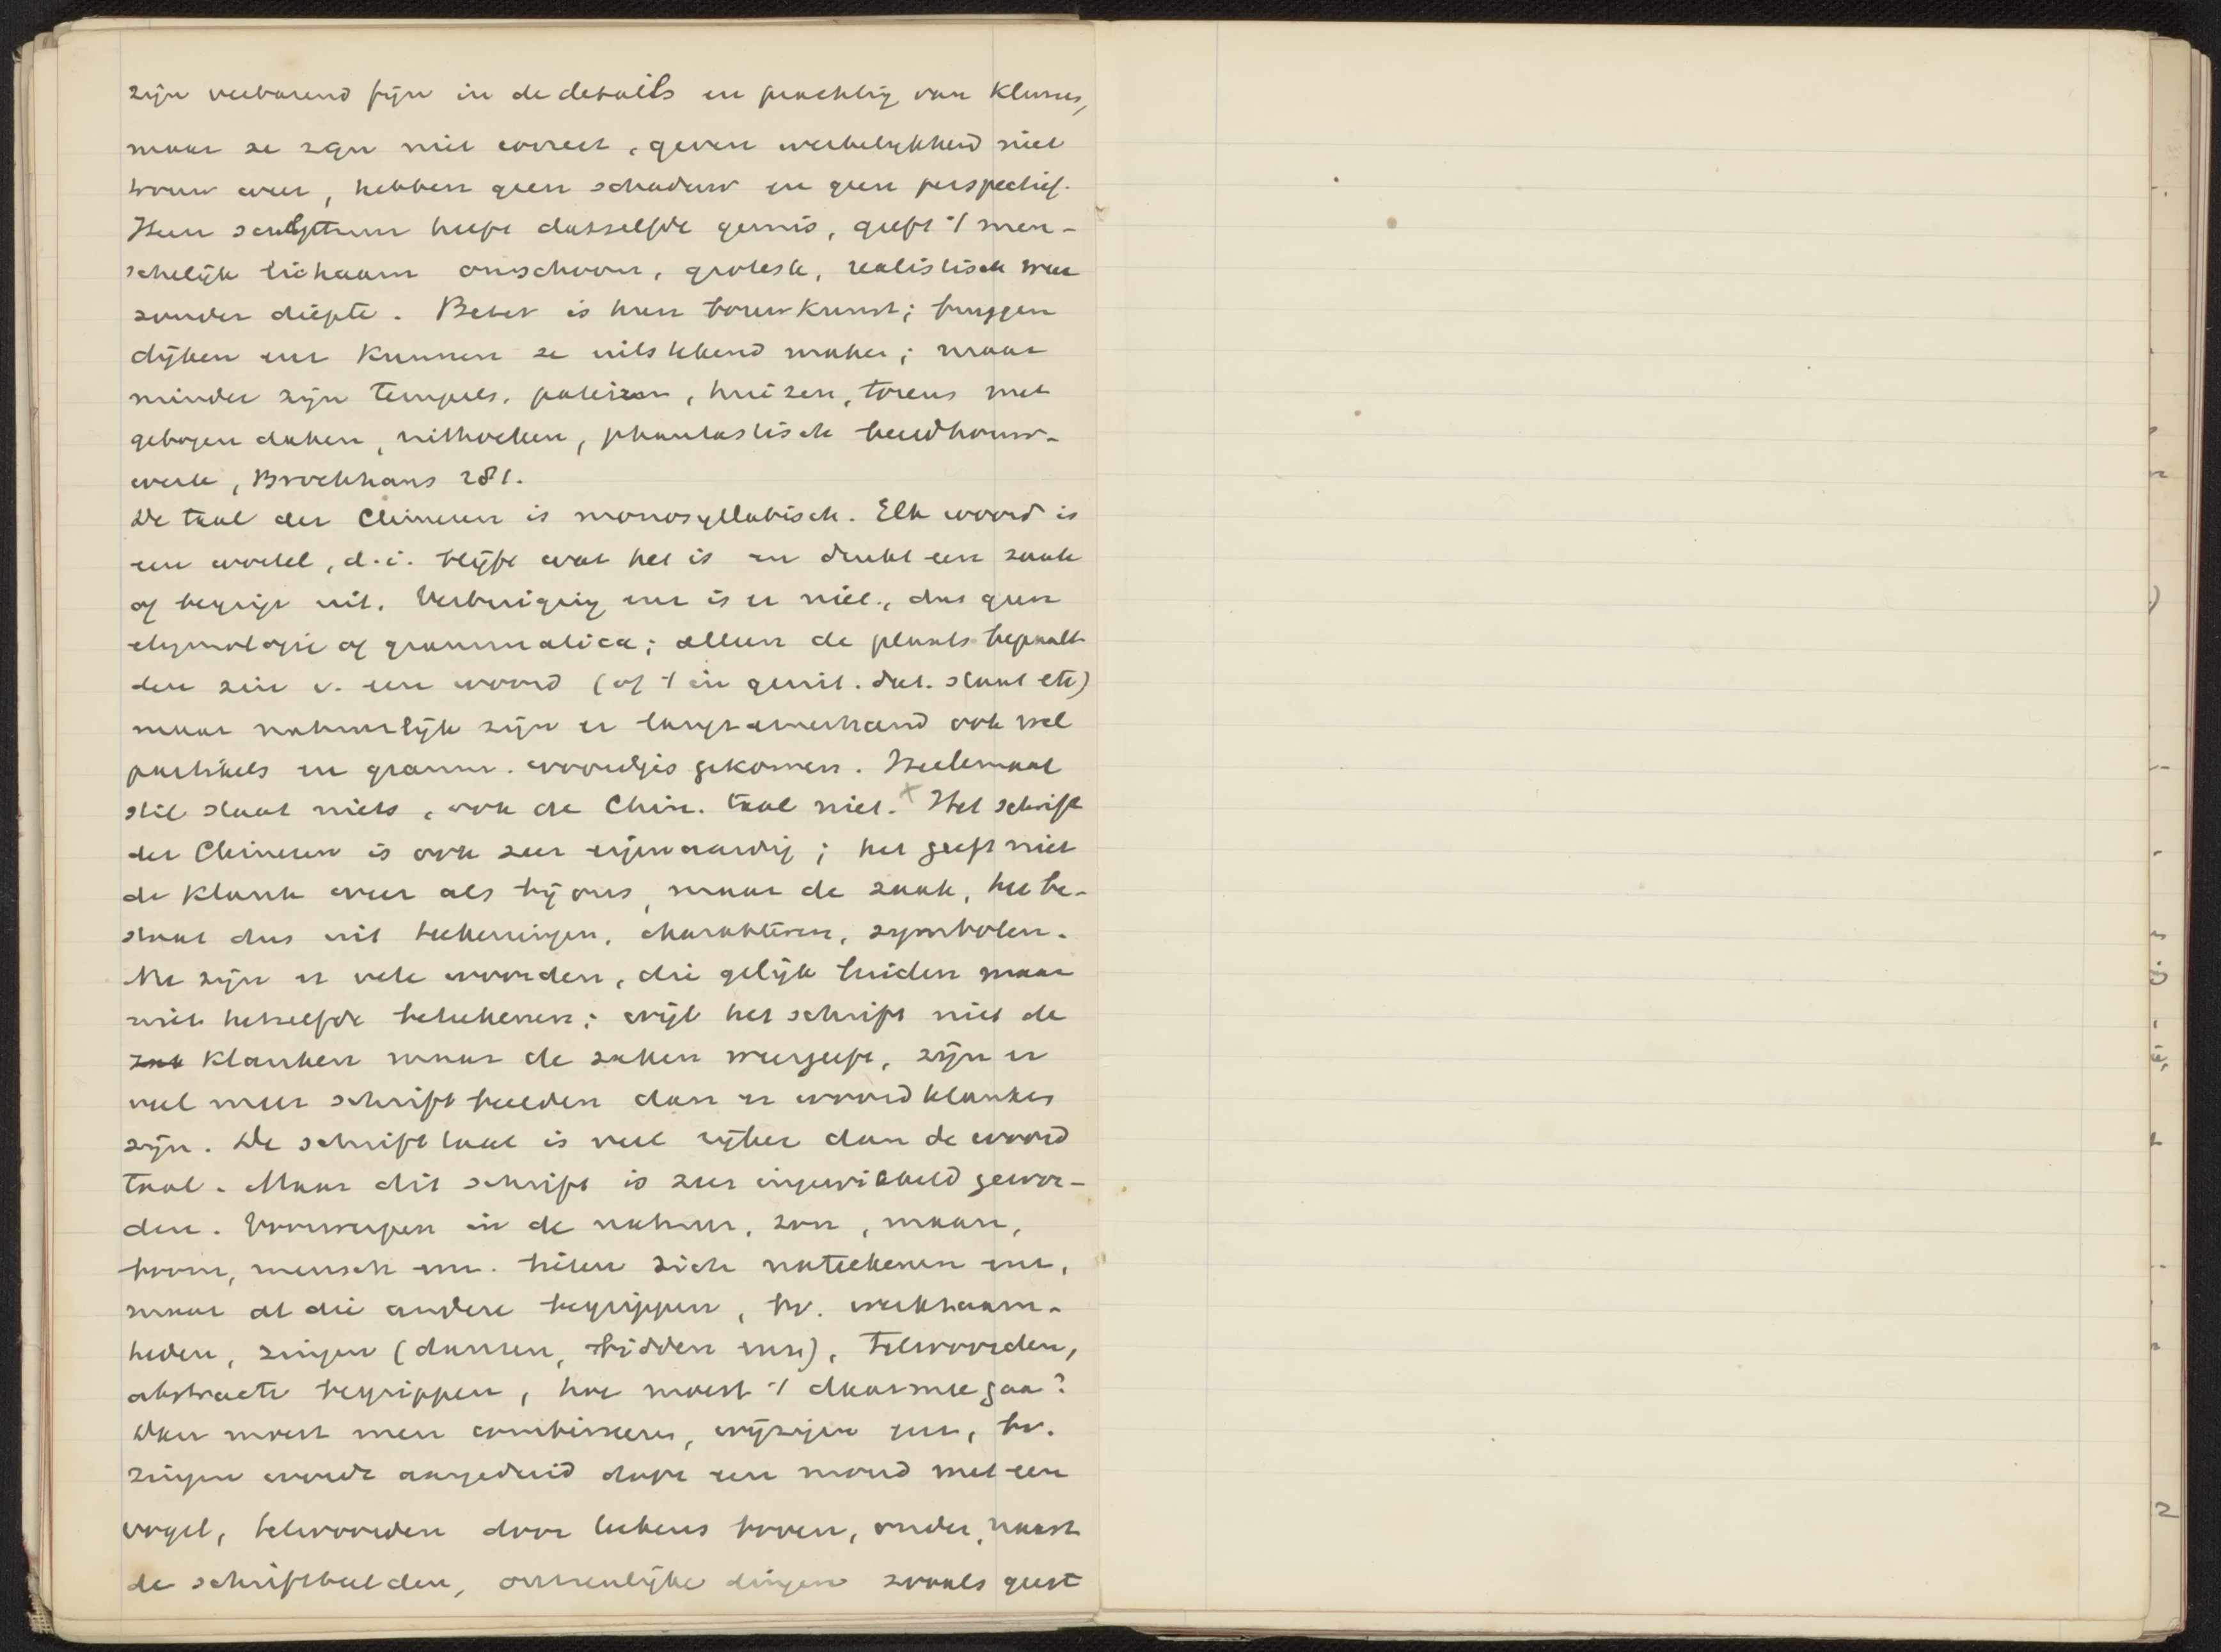 zijn verbazend fijn in de details en prachtig van kleuren,
maar ze zijn niet correct, geven werkelijkheid niet
trouw weer, hebben geen schaduw en geen perspectief.
Hun sculptuur heeft datzelfde gemis, geeft 't men-
schelijk lichaam onschoon, grotesk, realistisch weer
zonder diepte. Beter is hun bouwkunst; bruggen
dijken enz kunnen ze uitstekend maken; maar
minder zijn tempels, paleizen, huizen, torens met
gebogen daken, uithoeken, phantastisch beeldhouw-
werk, Brockhaus 281.
De taal der Chinezen is monosyllabisch. Elk woord is
een wortel, d.i. blijft wat het is en drukt een zaak
of begrip uit. Verbuiging enz is er niet, dus geen
etymologie of grammatica; alleen de plaats bepaalt
den zin v. een woord (of 't in genit. dat. staat etc)
maar natuurlijk zijn er langzamerhand ook wel
partikels en gramm. woordjes gekomen. Heelemaal
stil staat niets, ook de Chin. taal niet. x Het schrift
der Chinezen is ook zeer eigenaardig; het geeft niet
de klank weer als bij ons, maar de zaak, het be-
staat dus uit teekeningen, charakteren, symbolen.
Nu zijn er vele woorden, die gelijk luiden maar
niet hetzelfde beteekenen; wijl het schrift niet de
zak klanken maar de zaken weergeeft, zijn er
veel meer schriftbeelden dan er woordklanken
zijn. De schrifttaal is veel rijker dan de woord
taal. Maar dit schrift is zeer ingewikkeld gewor-
den. Voorwerpen in de natuur, zon, maan,
boom, mensch enz. lieten zich nateekenen enz,
maar al die andere begrippen, bv. werkzaam-
heden, zingen (dansen, bidden enz), telwoorden,
abstracte begrippen, hoe moest 't daarmee gaan?
Dan moest men combineeren, wijzigen enz, bv.
zingen werd aangeduid door een mond met een
vogel, telwoorden door teekens boven, onder, naast
de schriftbeelden, onzienlijke dingen zooals geest